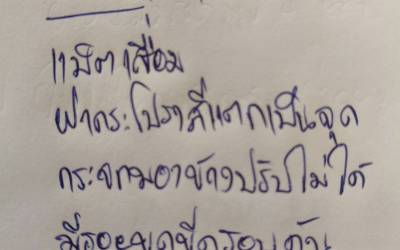 แบตเสื่อม
ฝากระโปรงสีแตกเป็นจุด
กระจกมองข้างปรับไม่ได้
มีรอยขูดขีดรอบคัน